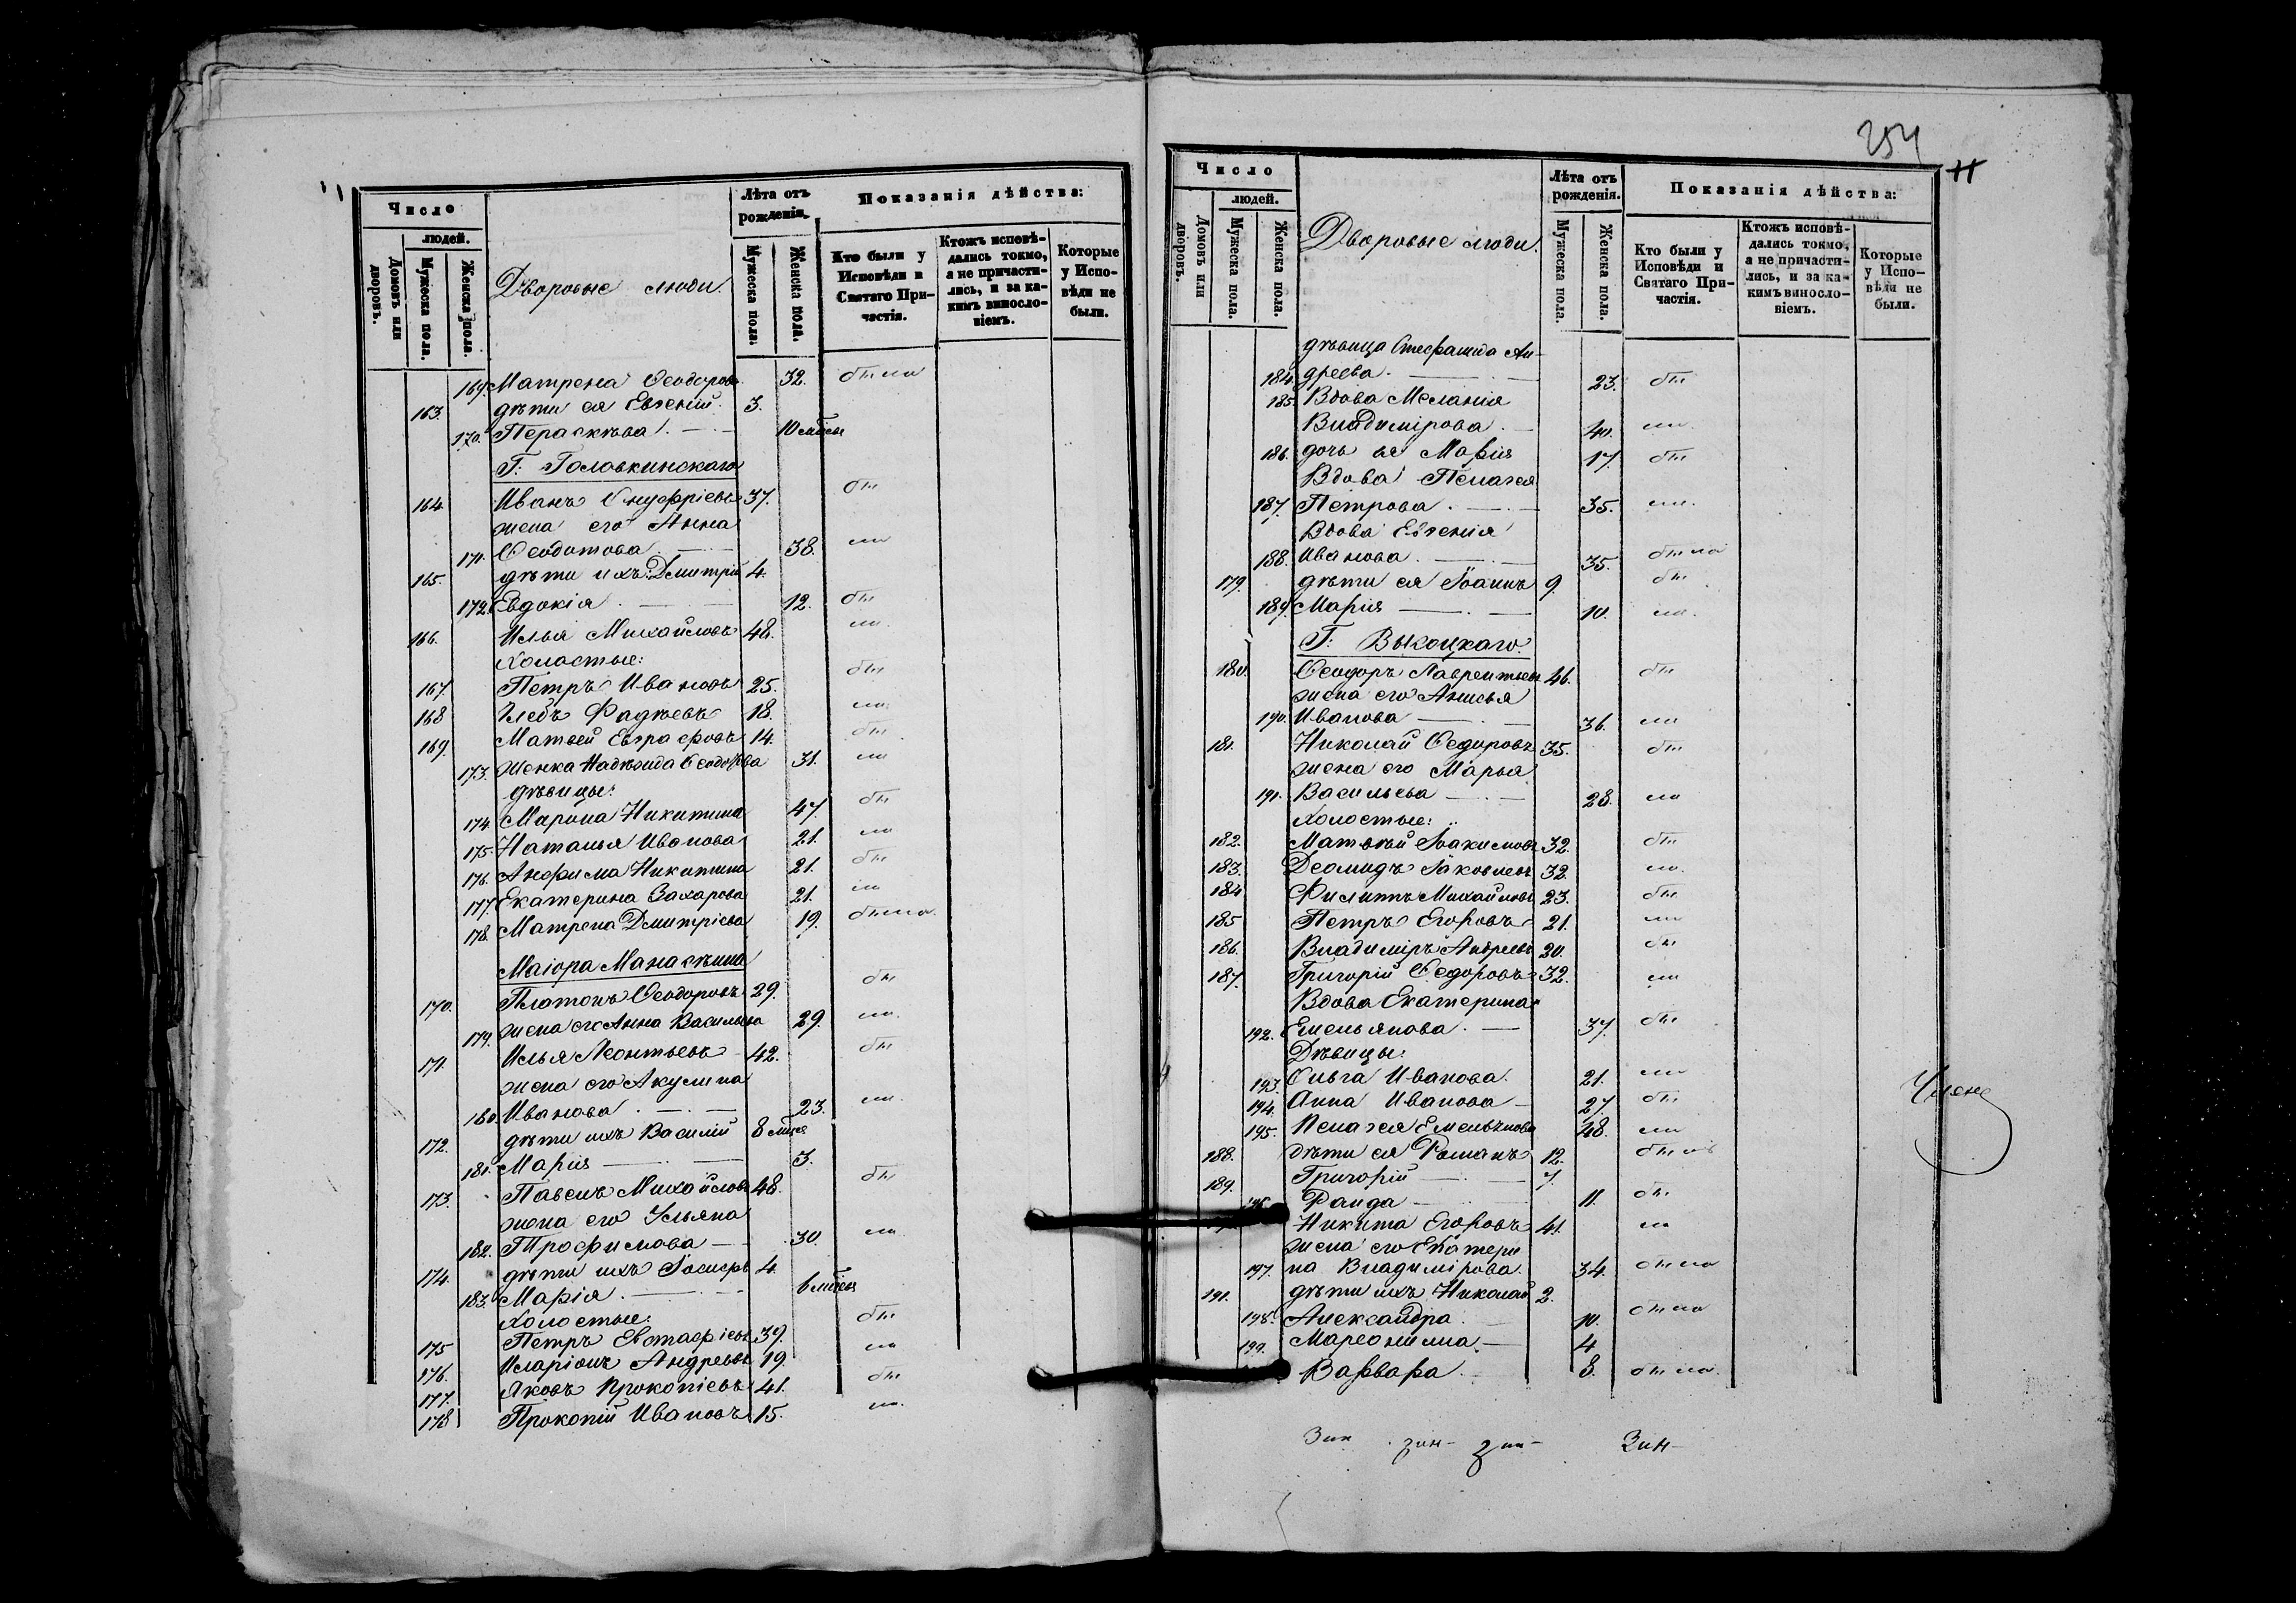 Число
людей.
Домовъ или дворовъ.
Мужеска пола.
Женска пола.
Дворовые люди.
Лѣта отъ рожденія.
Мужеска пола.
Женска пола.
Показанія дѣйства:
Кто были у Исповѣди и Святаго Причастія.
Ктожъ исповѣдались токмо, а не причастились, и за какимъ винословіемъ.
Которые у Исповѣди не были.
169. Матрена Ѳеодорова 32. были
163. дѣти ея Евгеній 3.
170. Пераскѣва 10 мѣсяц
Г: Головкинскаго
164 Иванъ Онуфріевъ 37. бы
жена его Анна
171. Ѳеодотова 38. ли
165. дѣти ихъ: Дмитрій 4.
172. Евдокія 12. бы
166. Илья Михайловъ 48. ли.
Холостые:
167. Петръ Ивановъ 25. бы
168 Глебъ Фадѣевъ 18. ли
169. Матвей Евграфовъ 14. бы
173. женка Надѣжда Ѳеодорова 31. ли
дѣвицы:
174. Марина Никитина 47. бы
175. Наталья Иванова 21. ли
176. Анфима Никитина 21. бы
177. Екатерина Захарова 21. ли
178. Матрена Дмитріева 19. были.
Маіора Манаскѣина
170. Платонъ Ѳеодоровъ 29. бы
179. жена его Анна Васильева 29. ли.
171. Илья Леонтьевъ 42. бы
жена его Акулина
180. Иванова 23. ли.
172. дѣти ихъ Василій 8 мѣся
181. Марія 3.
173. Павелъ Михайловъ 48. бы
жена его Ульяна
182. Трофимова 30. ли
174. дѣти ихъ Іосифъ 4.
183. Марія 6 мѣсяц
Холостые:
175 Петръ Евстафіевъ 39. бы
176. Иларіонъ Андреевъ 19. ли
177. Яковъ Прокопіевъ 41. бы
178 Прокопій Ивановъ 15. ли.
254
11
Число
людей.
Домовъ или дворовъ.
Мужеска пола.
Женска пола.
Дворовые люди.
Лѣта отъ рожденія.
Мужеска пола.
Женска пола.
Показанія дѣйства:
Кто были у Исповѣди и Святаго Причастія.
Ктожъ исповѣдались токмо, а не причастились, и за какимъ винословіемъ.
Которые у Исповѣди не были.
дѣвица Стефанида Ан-
184. дреева. 23. бы
185. Вдова Меланія
Владимірова 40. ли.
186. дочь ея Марія 17. бы
Вдова Пелагея
187. Петрова 35. ли.
Вдова Евгенія
188. Иванова 35. были
179. дѣти ея Іоаннъ 9. бы
189. Марія 10. ли.
Г: Выкоцкаго.
180. Ѳеодоръ Лаврентьевъ 46. бы
жена его Анисья
190. Иванова 36. ли
181. Николай Ѳедоровъ 35. бы
жена его Марья
191. Васильева 28. ли
Холостые:
182. Матвѣй Іоакимовъ 32. бы
183. Деомидъ Іаковлевъ 32. ли.
184 Филиппъ Михайловъ 23. бы
185 Петръ Егоровъ 21. ли
186. Владиміръ Андреевъ 20. бы
187. Григорій Ѳедоровъ 32. ли
Вдова Екатерина
192. Емельянова 37. бы
Дѣвицы:
193. Ольга Иванова. 21. ли
194. Анна Иванова 27. бы
195. Пелагея Емельянова 48. ли
188. дѣти ея Романъ 12. были
189. Григорій 7.
Раида 11. бы
Никита Егоровъ 41. ли
жена его Екатери
197. на Владимірова. 34. были
191. дѣти ихъ Николай 2.
198. Александра 10. были
199. Мареонилла 4
Варвара 8. были.
Членъ
Зин зин- зин- Зин-